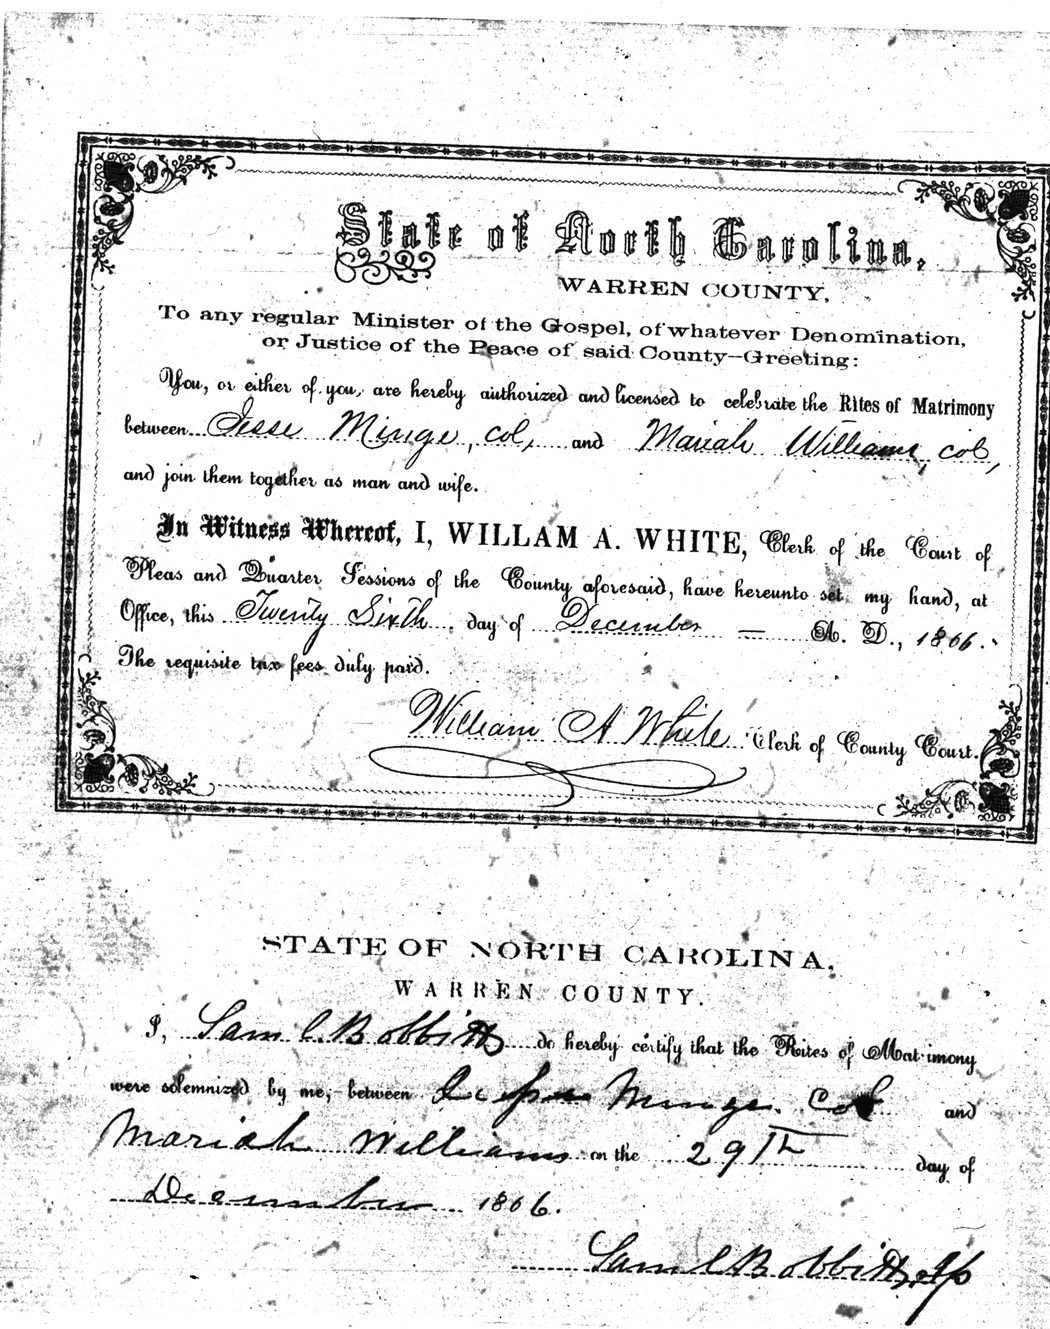 State of North Carolina,
WARREN COUNTY.
To any regular Minister of the Gospel, of whatever Denomination,
or Justice of the Peace of said County—Greeting:
You, or either of you, are hereby authorized and licensed to celebrate the Rites of Matrimony
between Jesse Minge, col, and Mariah Williams, col,
and join them together as man and wife.
In Witness Whereof, I, WILLAM A. WHITE, Clerk of the Court of
Pleas and Quarter Sessions of the County aforesaid, have hereunto set my hand, at
Office, this Twenty Sixth day of December — A. D., 1866.
The requisite tax fees duly paid.
William A White Clerk of County Court.
STATE OF NORTH CAROLINA,
WARREN COUNTY.
I, Sam l. Bobbitt do hereby certify that the Rites of Matrimony
were solemnized by me, between Jesse Minge Col and
Mariah Williams on the 29th day of
December 1866.
Sam l Bobbitt Jp